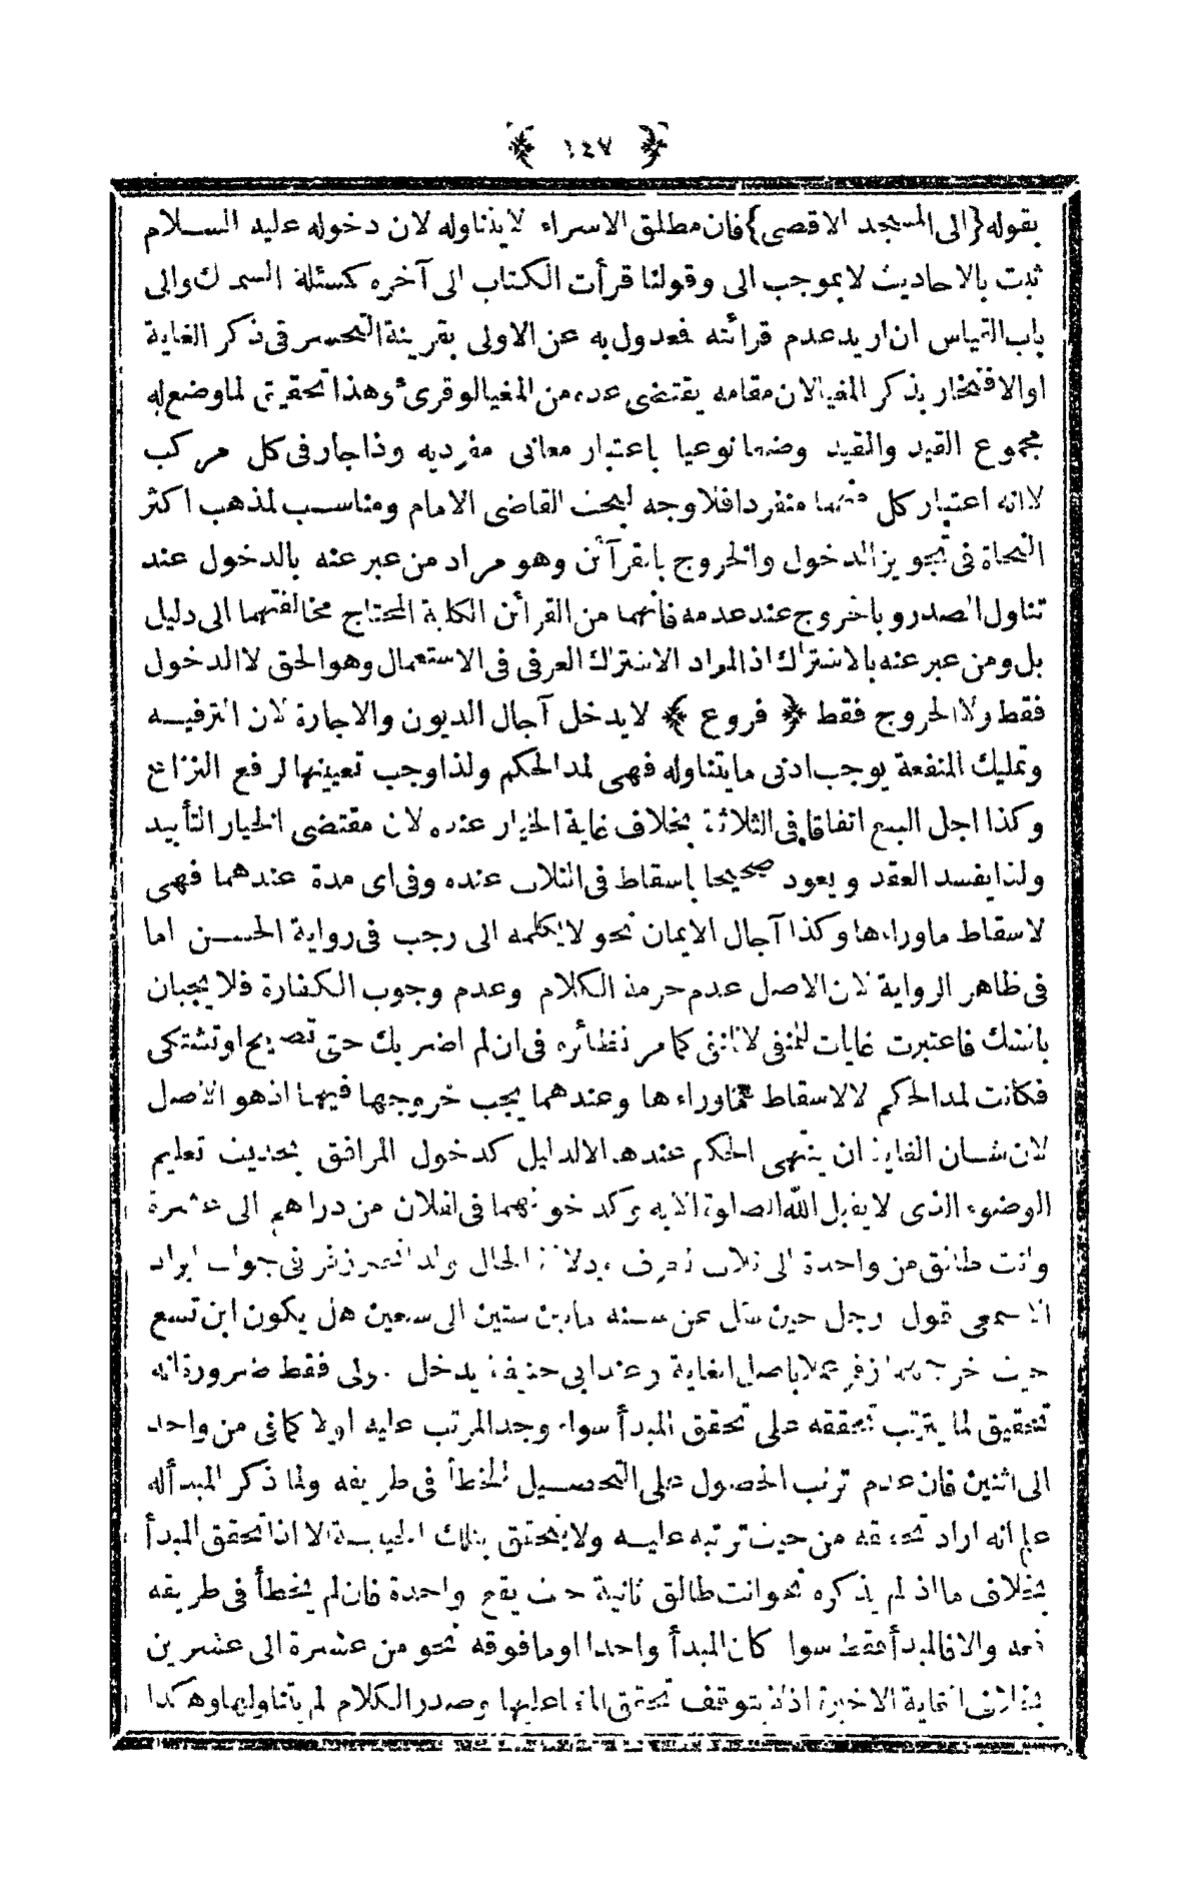 ﴿ ١٤٧ ﴾
بقوله {الى المسجد الاقصى} فان مطلق الاسراء لا يتناوله لان دخوله عليه السلام
ثبت بالاحاديث لا بموجب الى وقولنا قرأت الكتاب الى آخره كمسئلة السمك والى
باب القياس ان اريد عدم قرائته فعدول به عن الاولى بقرينة التحسر فى ذكر الغاية
او الافتخار بذكر المغيا لان مقامه يقتضى عده من المغيا لو قرئ وهذا تحقيق لما وضع له
مجموع القيد والمقيد وضعا نوعيا باعتبار معانى مفرديه وذا جار فى كل مركب
لا انه اعتبار كل منهما منفردا فلا وجه لبحث القاضى الامام ومناسب لمذهب اكثر
النحاة فى تجويز الدخول والخروج بالقرآئن وهو مراد من عبر عنه بالدخول عند
تناول الصدر وبالخروج عند عدمه فانهما من القرائن الكلية المحتاج مخالفتهما الى دليل
بل ومن عبر عنه بالاشتراك اذ المراد الاشتراك العرفى فى الاستعمال وهو الحق لا الدخول
فقط ولا الخروج فقط ﴿ فروع ﴾ لا يدخل آجال الديون والاجارة لان الترفيه
وتمليك المنفعة يوجب ادنى ما يتناوله فهى لمد الحكم ولذا وجب تعيينها لرفع النزاع
وكذا اجل البيع اتفاقا فى الثلاثة بخلاف غاية الخيار عنده لان مقتضى الخيار التأبيد
ولذا يفسد العقد ويعود صحيحا باسقاط فى الثلاث عنده وفى اى مدة عندهما فهى
لاسقاط ماوراءها وكذا آجال الايمان نحو لا يكلمه الى رجب فى رواية الحسن اما
فى ظاهر الرواية لان الاصل عدم حرمة الكلام وعدم وجوب الكفارة فلا يجبان
بالشك فاعتبرت غايات للمنفى لا للنفى كما مر نظائره فى ان لم اضربك حتى تصيح او تشتكى
فكانت لمد الحكم لا لاسقاط ماوراءها وعندهما يجب خروجها فيهما اذ هو الاصل
لان شان الغاية ان ينتهى الحكم عندها الا لدليل كدخول المرافق بحديث تعليم
الوضوء الذى لا يقبل الله الصلوة الا به وكدخولهما فى لفلان من دراهم الى عشرة
وانت طالق من واحدة الى ثلاث بعرف ودلالة الحال ولذا زفر فى جواب ايراد
الاصمعى قول رجل حين سئل عن سنه مابين ستين الى سبعين هل يكون ابن تسع
حيث زفر عملا باصل الغاية وعند ابى حنيفة يدخل الاولى فقط ضرورة انه
تحقيق لما يترتب تحققه على تحقق المبدأ سواء وجد المرتب عليه اولا كما فى من واحد
الى اثنين فان عدم ترتب الحصول على التحصيل للخطأ فى طريقه ولما ذكر المبدأ له
علم انه اراد تحققه من حيث ترتبه عليه ولا يتحقق بتلك الحيثية الا اذا تحقق المبدأ
بخلاف ما اذ لم يذكره نحو انت طالق ثانية حيث يقع واحدة فان لم يخطأ فى طريقه
والا فالمبدأ فقط سوا كان المبدأ واحدا او ما فوقه نحو من عشرة الى عشرين
بخلاف الغاية الاخيرة اذ لا يتوقف تحقق عليها وصدر الكلام لم يتناولها وهكذا